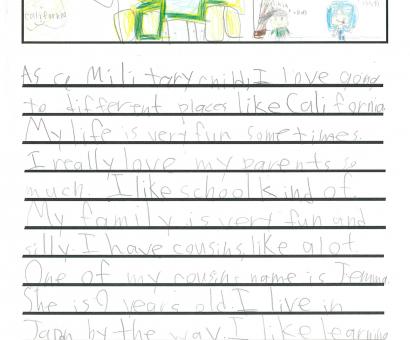 California
As a Military child, I love going
to different places like California.
My life is very fun sometimes.
I really love my parents so
much. I like school kind of.
My family is very fun and
silly. I have cousins, like alot
One of my cousins name is Jemma.
She is 9 years old. I live in
Japan by the way. I like learning